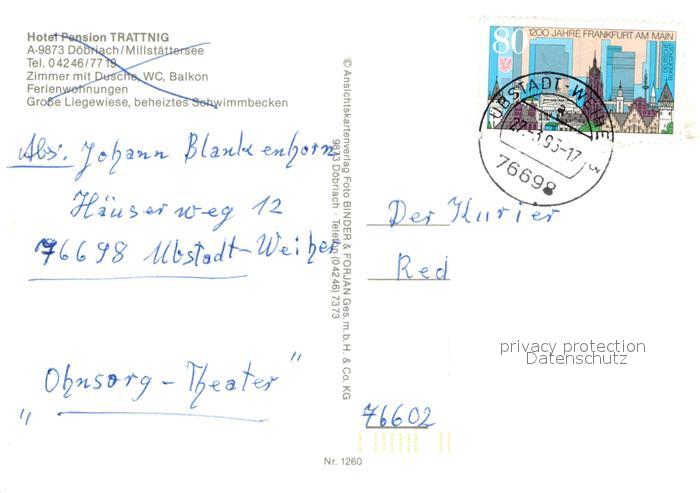 Hotel Pension TRATTNIG
A-9873 Döbriach/Millstättersee
Tel. 04246/7719
Zimmer mit Dusche, WC, Balkon
Ferienwohnungen
Große Liegewiese, beheiztes Schwimmbecken
Abs: Johann Blankenhorn
Häuserweg 12
76698 Ubstadt-Weiher
"Ohnsorg-Theater"
© Ansichtskartenverlag Foto BINDER & FORJAN Ges.m.b.H. & Co. KG
9873 Döbriach · Telefon (04246) 7373
Nr. 1260
80 1200 JAHRE FRANKFURT AM MAIN
DEUTSCHE BUNDESPOST
UBSTADT-WEIHER
76698
Der Kurier
Red
76602
privacy protection
Datenschutz